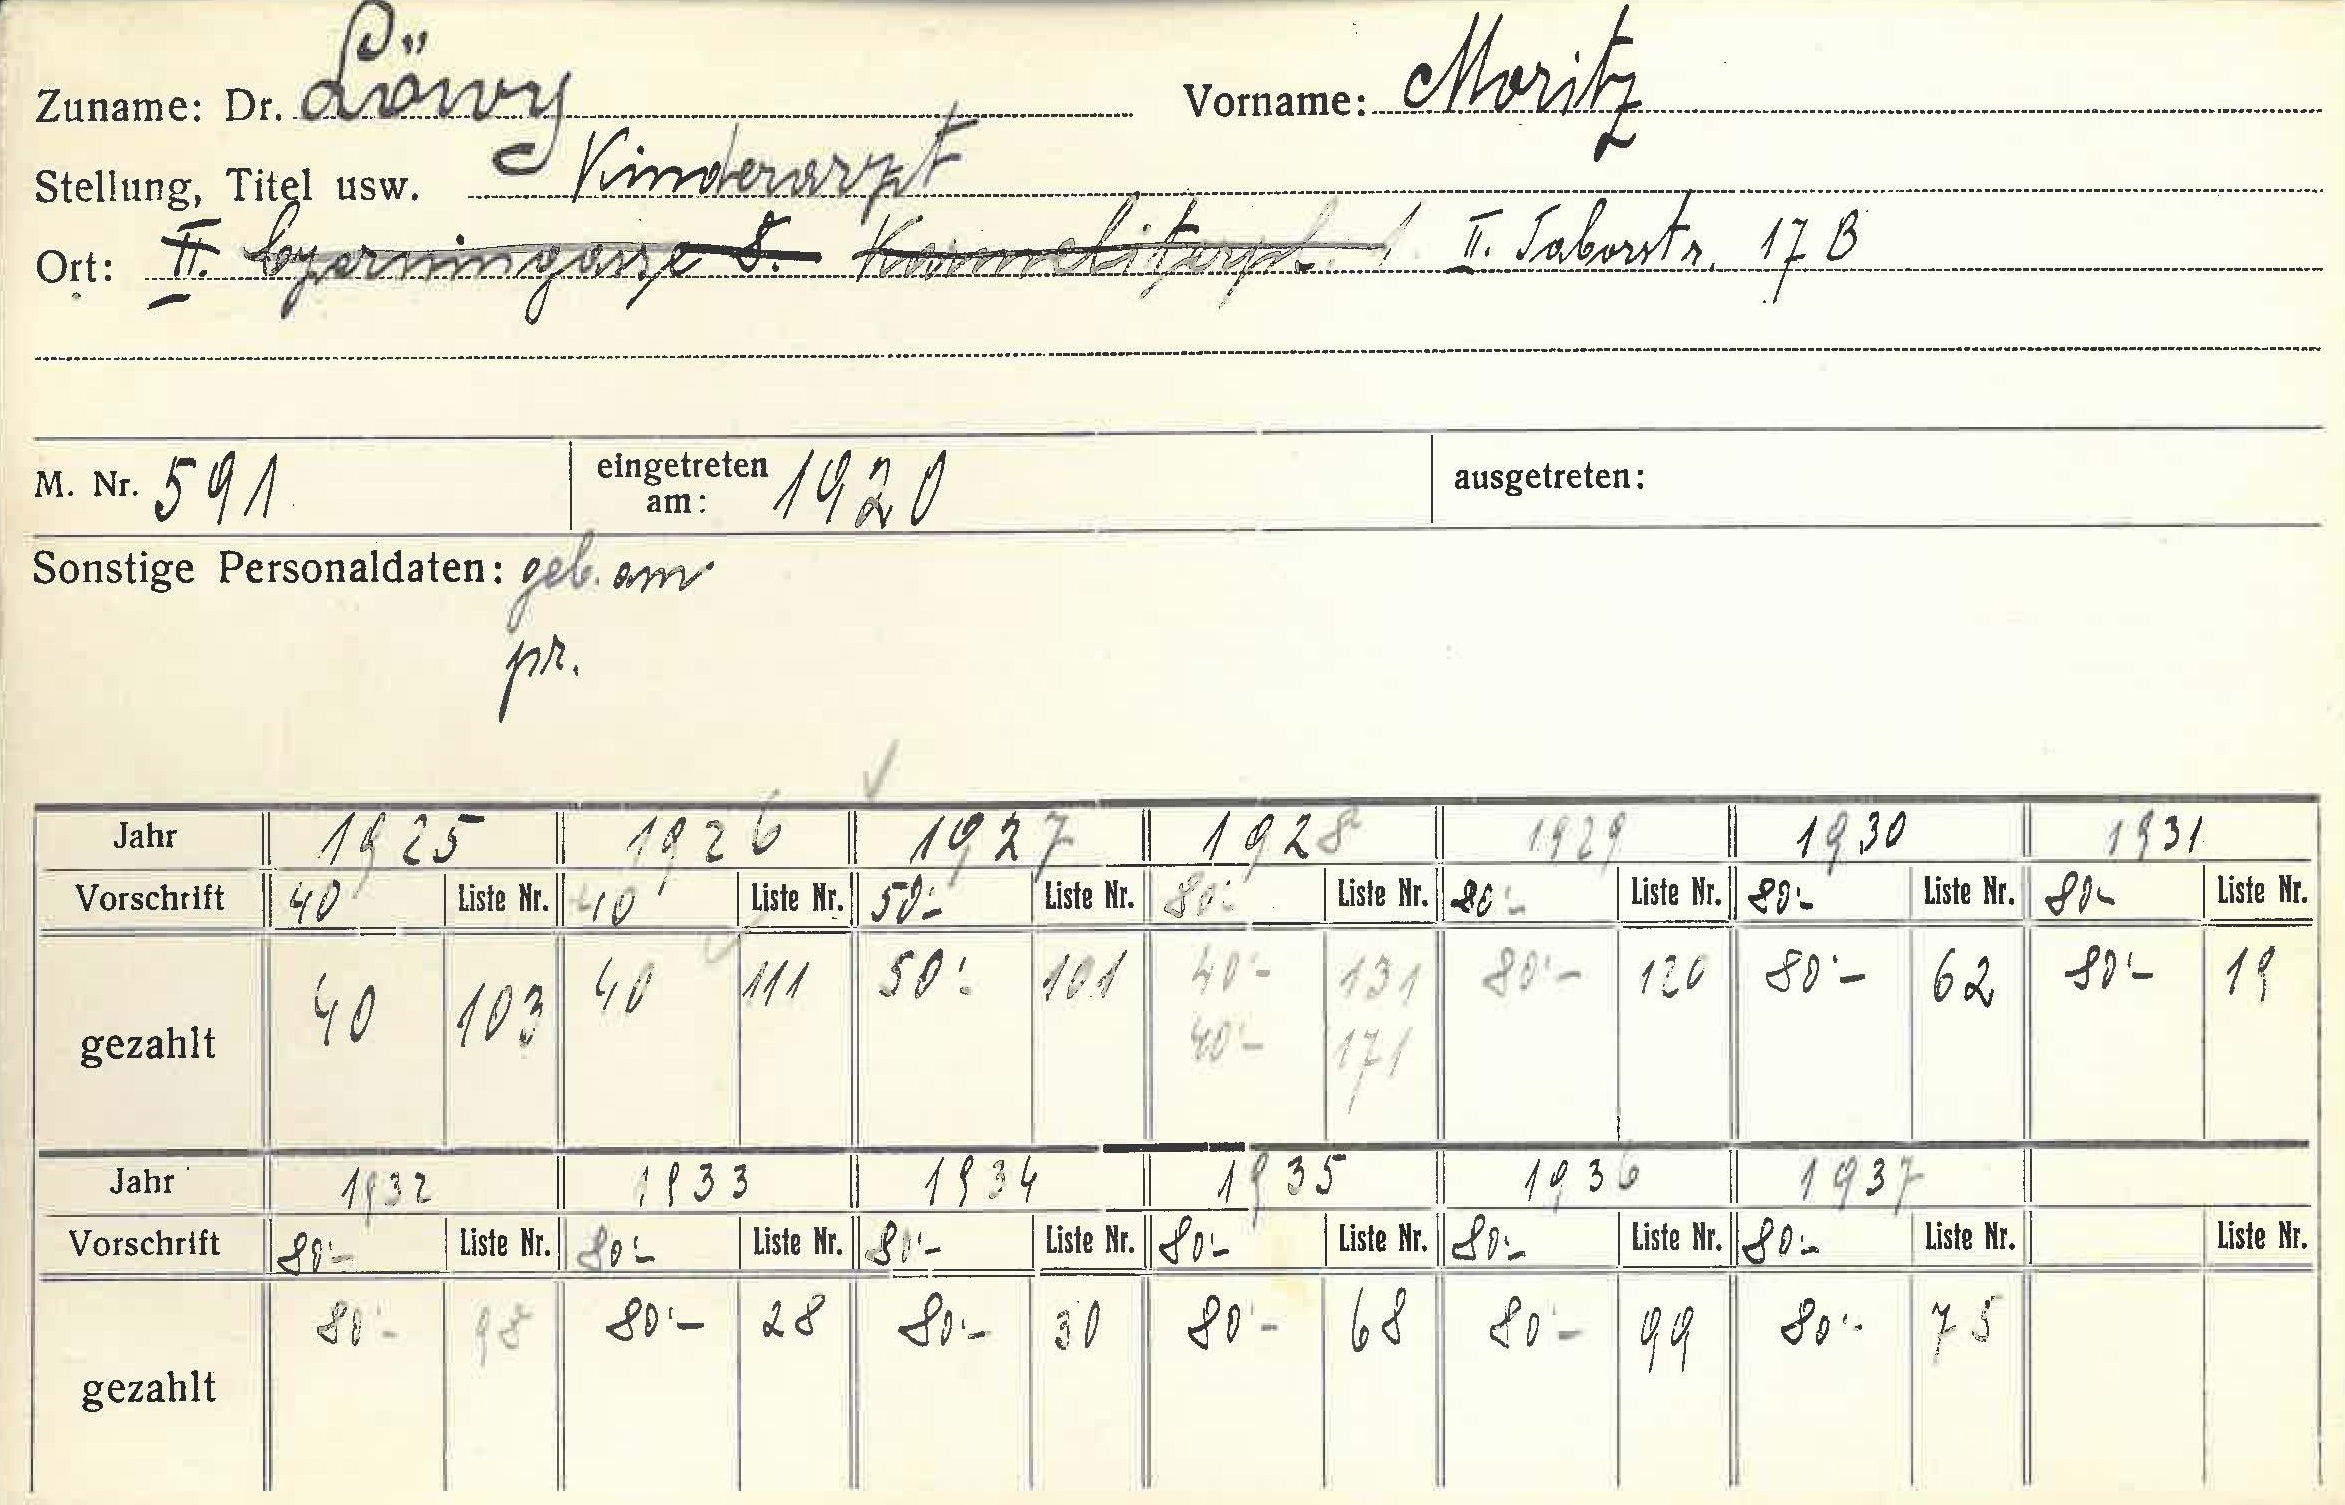 Zuname: Dr. Löwy Vorname: Moritz
Stellung, Titel usw. Kinderarzt
Ort: II. Czerningasse 8. Karmeliterpl. 1. II. Taborstr. 17 B
M. Nr. 591 eingetreten am: 1920 ausgetreten:
Sonstige Personaldaten: geb. am
pr.
Jahr 1925 1926 1927 1928 1929 1930 1931
Vorschrift 40 Liste Nr. 40 Liste Nr. 50'- Liste Nr. 80'- Liste Nr. 80'- Liste Nr. 80'- Liste Nr. 80'- Liste Nr.
gezahlt 40 103 40 111 50'- 101 40'- 131 80'- 120 80'- 62 80'- 19
40'- 171
Jahr 1932 1933 1934 1935 1936 1937
Vorschrift 80'- Liste Nr. 80'- Liste Nr. 80'- Liste Nr. 80'- Liste Nr. 80'- Liste Nr. 80'- Liste Nr. Liste Nr.
gezahlt 80'- 98 80'- 28 80'- 30 80'- 68 80'- 99 80'- 75